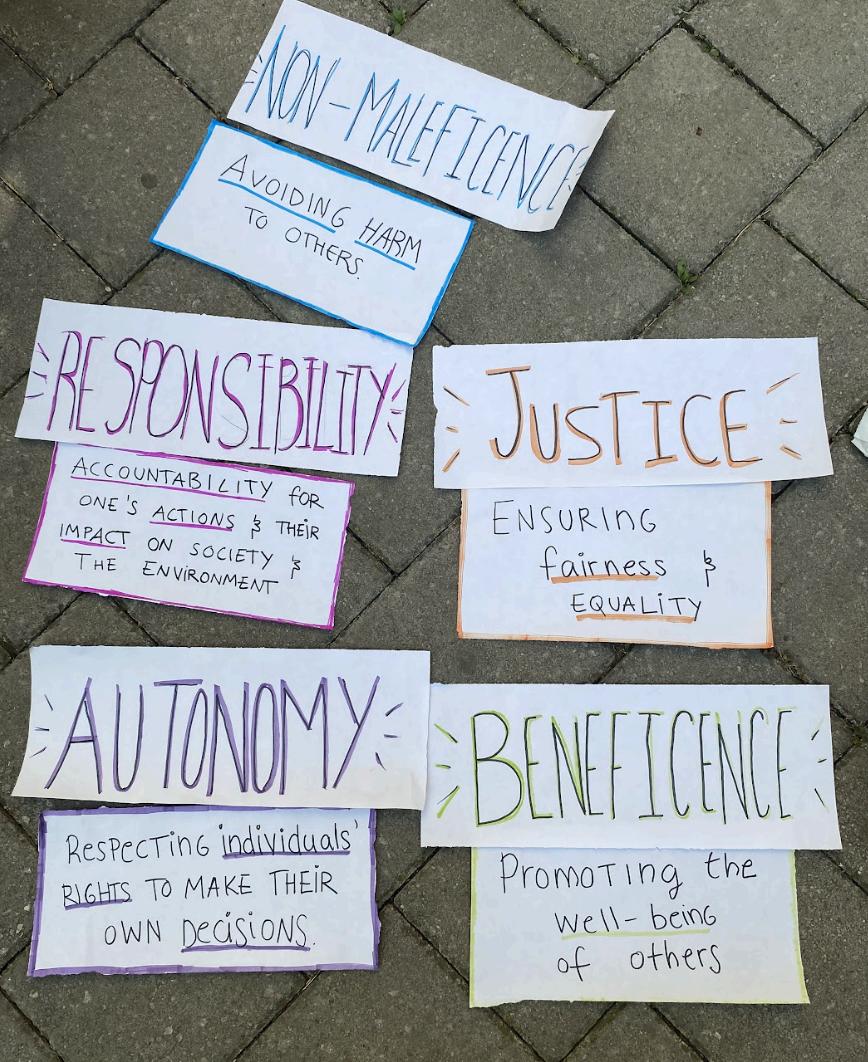 NON-MALEFICENCE
AVOIDING HARM
TO OTHERS.
RESPONSIBILITY
ACCOUNTABILITY fOR
ONE'S ACTIONS & THEiR
IMPACT ON SOCIETY &
THE ENVIRONMENT
JUSTICE
ENSURING
fairness &
EQUALITY
AUTONOMY
RESPECTING individuals'
RIGHTS TO MAKE THEIR
OWN DECiSiONS.
BENEFICENCE
PROMOTING the
well-being
of others